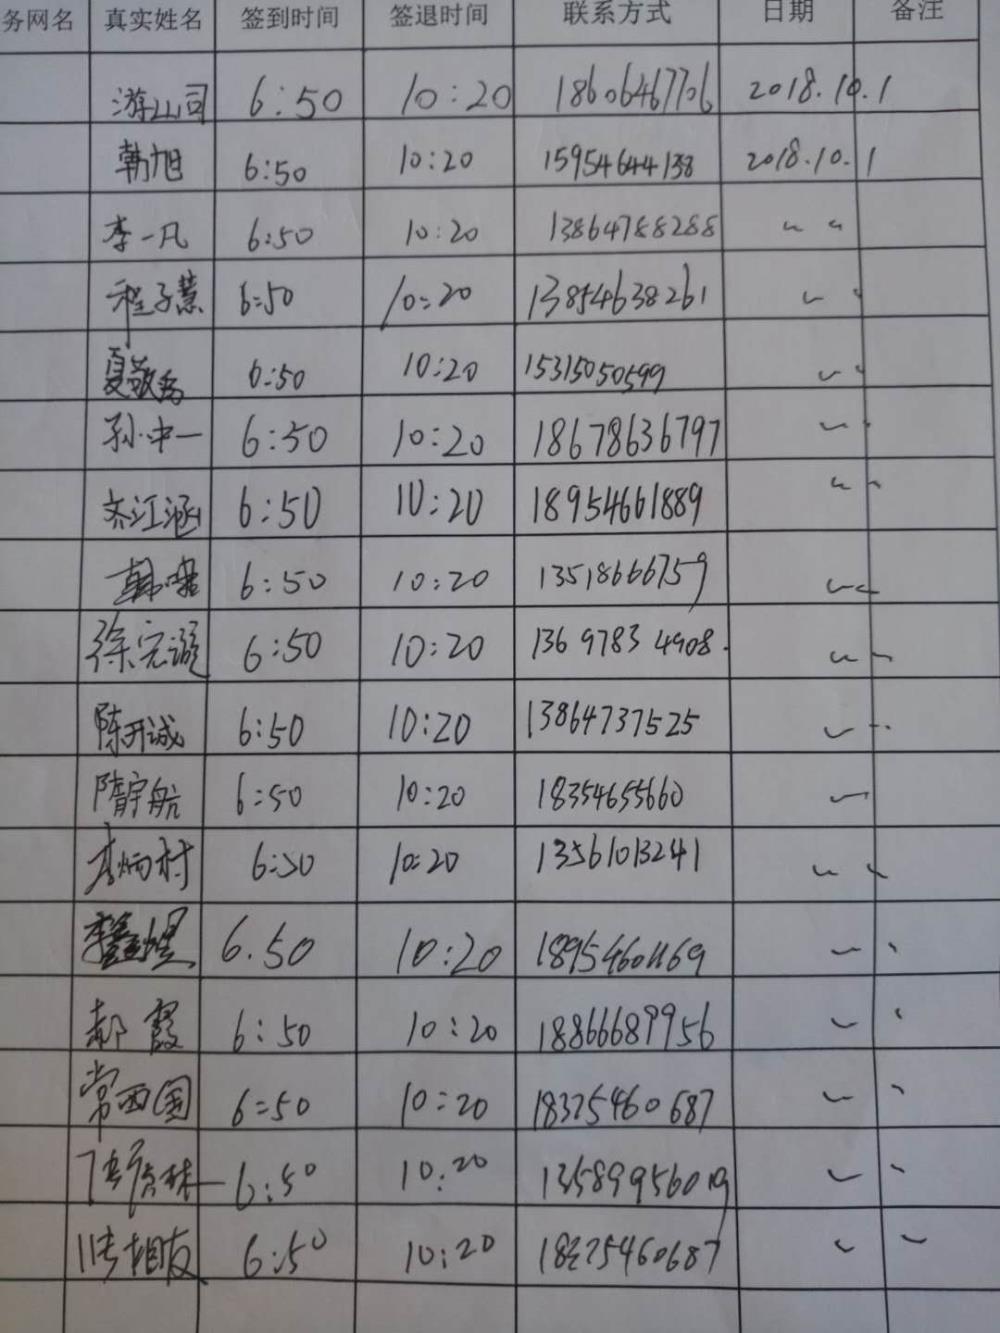 务网名 真实姓名 签到时间 签退时间 联系方式 日期 备注
游山司 6:50 10:20 18606467706 2018.10.1
韩旭 6:50 10:20 15954644138 2018.10.1
李一凡 6:50 10:20 13864788288 〃
程子慧 6:50 10:20 13854638261 〃
夏敬 6:50 10:20 15315050599 〃
孙中一 6:50 10:20 18678636797 〃
齐江涵 6:50 10:20 18954661889 〃
韩 6:50 10:20 13518666759 〃
徐完璇 6:50 10:20 136 9783 4908 〃
陈开诚 6:50 10:20 13864737525 〃
隋宇航 6:50 10:20 18354655660 〃
李炳村 6:50 10:20 13561013241 〃
李鑫煜 6.50 10:20 18954601169 〃
郝霞 6:50 10:20 18866689956 〃
常西国 6:50 10:20 18325460687 〃
6:50 10:20 13589956019 〃
张相友 6:50 10:20 18325460687 〃